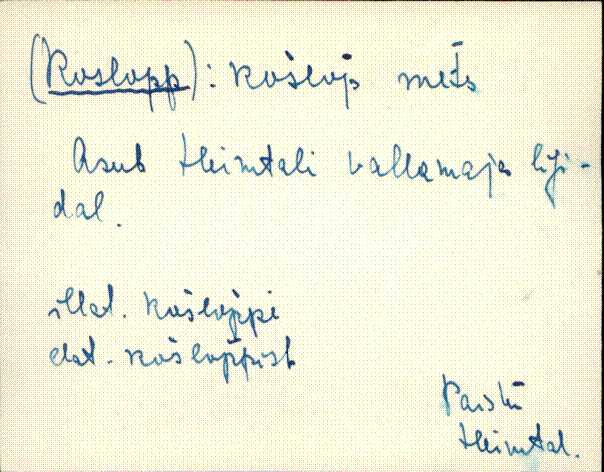 (Koslopp): košlop̀ mets
Asub Heimtali vallamaja ligi-
dal.
illat. košlop̀pi
elat. košlop̀pist
Paistu
Heimtal.